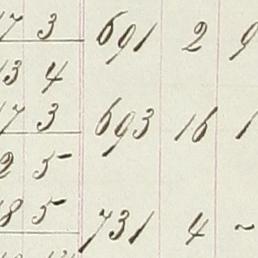 17 3 691 2 9
13 4
17 3 693 16 1
2 5
18 5 731 4 ~